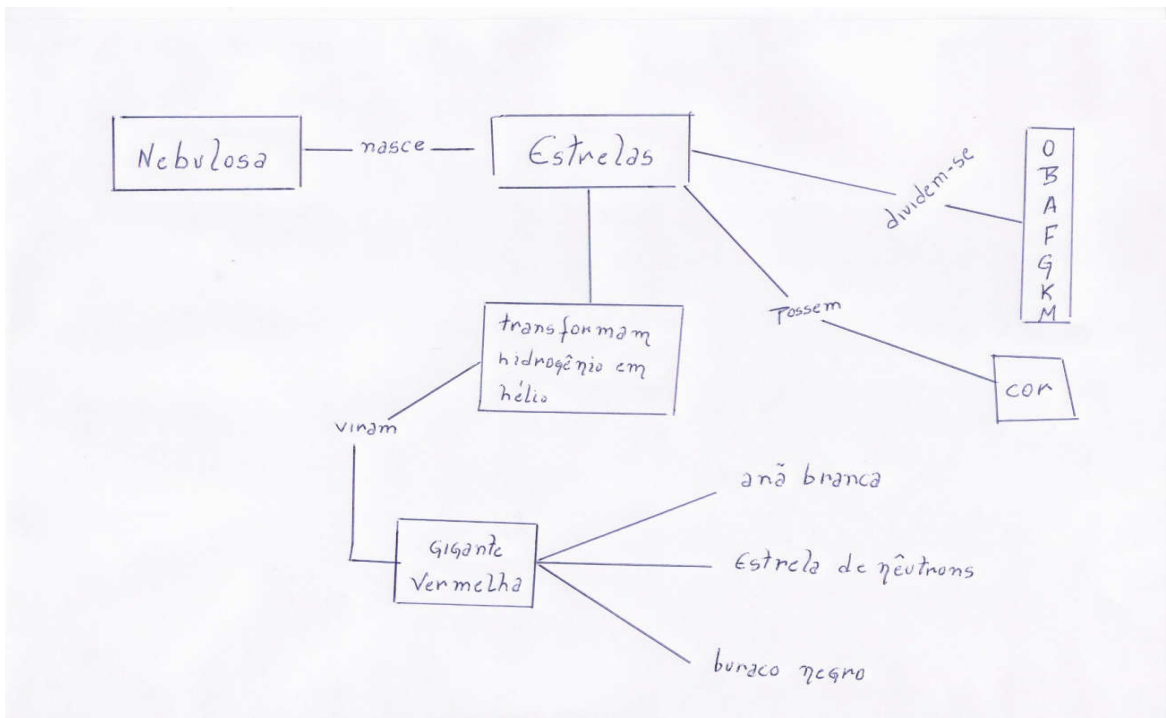 Nebulosa
nasce
Estrelas
dividem-se
O
B
A
F
G
K
M
Possem
cor
transformam
hidrogênio em
hélio
viram
Gigante
Vermelha
anã branca
Estrela de nêutrons
buraco negro